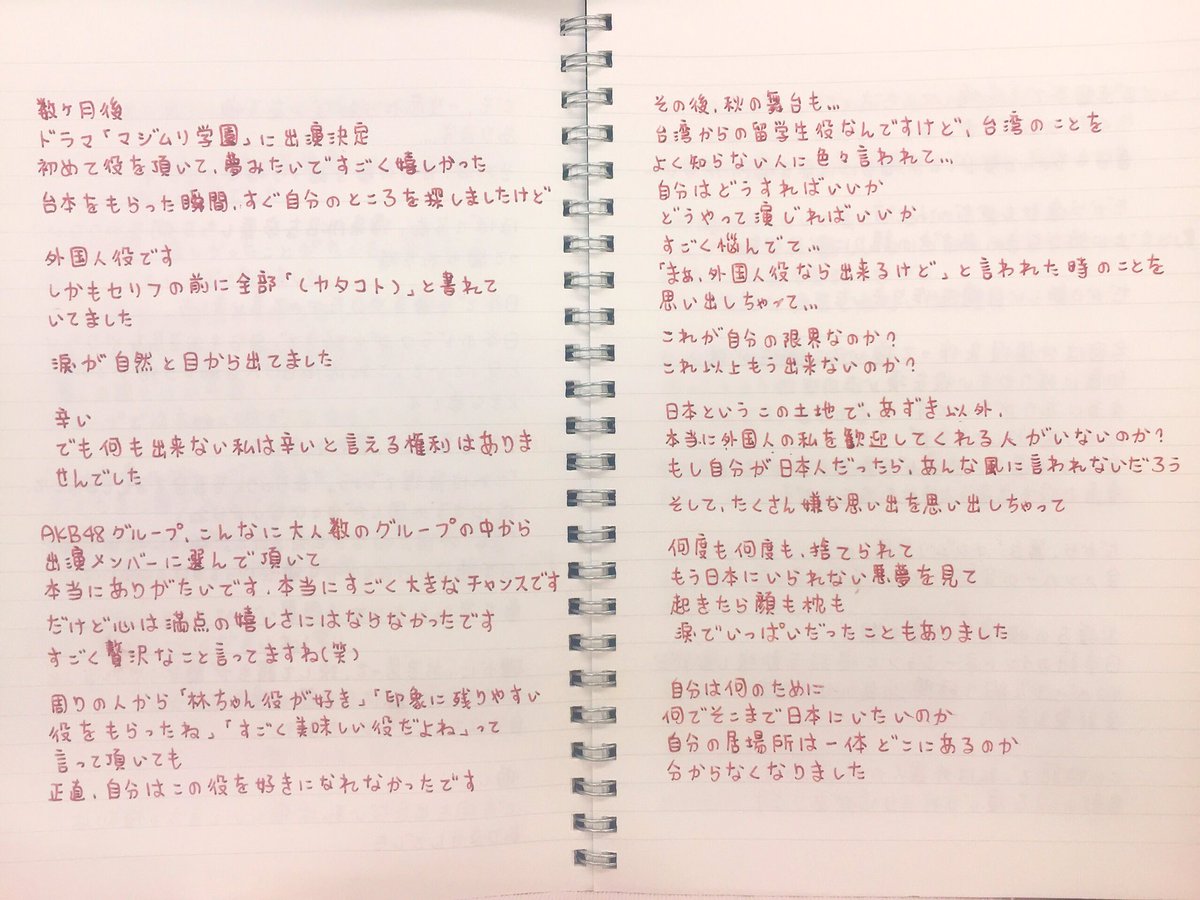 数ヶ月後
ドラマ「マジムリ学園」に出演決定
初めて役を頂いて、夢みたいですごく嬉しかった
台本をもらった瞬間、すぐ自分のところを探しましたけど
外国人役です
しかもセリフの前に全部「(カタコト)」と書れて
いてました
涙が自然と目から出てました
辛い
でも何も出来ない私は辛いと言える権利はありま
せんでした
AKB48グループ、こんなに大人数のグループの中から
出演メンバーに選んで頂いて
本当にありがたいです、本当にすごく大きなチャンスです
だけど心は満点の嬉しさにはならなかったです
すごく贅沢なこと言ってますね(笑)
周りの人から「林ちゃん役が好き」「印象に残りやすい
役をもらったね」「すごく美味しい役だよね」って
言って頂いても
正直、自分はこの役を好きになれなかったです
その後、秋の舞台も...
台湾からの留学生役なんですけど、台湾のことを
よく知らない人に色々言われて...
自分はどうすればいいか
どうやって演じればいいか
すごく悩んでて...
「まぁ、外国人役なら出来るけど」と言われた時のことを
思い出しちゃって...
これが自分の限界なのか?
これ以上もう出来ないのか?
日本というこの土地で、あずき以外、
本当に外国人の私を歓迎してくれる人がいないのか?
もし自分が日本人だったら、あんな風に言われないだろう
そして、たくさん嫌な思い出を思い出しちゃって
何度も何度も、捨てられて
もう日本にいられない悪夢を見て
起きたら顔も枕も
涙でいっぱいだったこともありました
自分は何のために
何でそこまで日本にいたいのか
自分の居場所は一体どこにあるのか
分からなくなりました